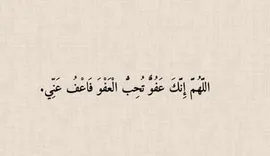 اللّهُمّ إِنّكَ عَفُوٌّ تُحِبُّ الْعَفْوَ فَاعْفُ عَنِّي.